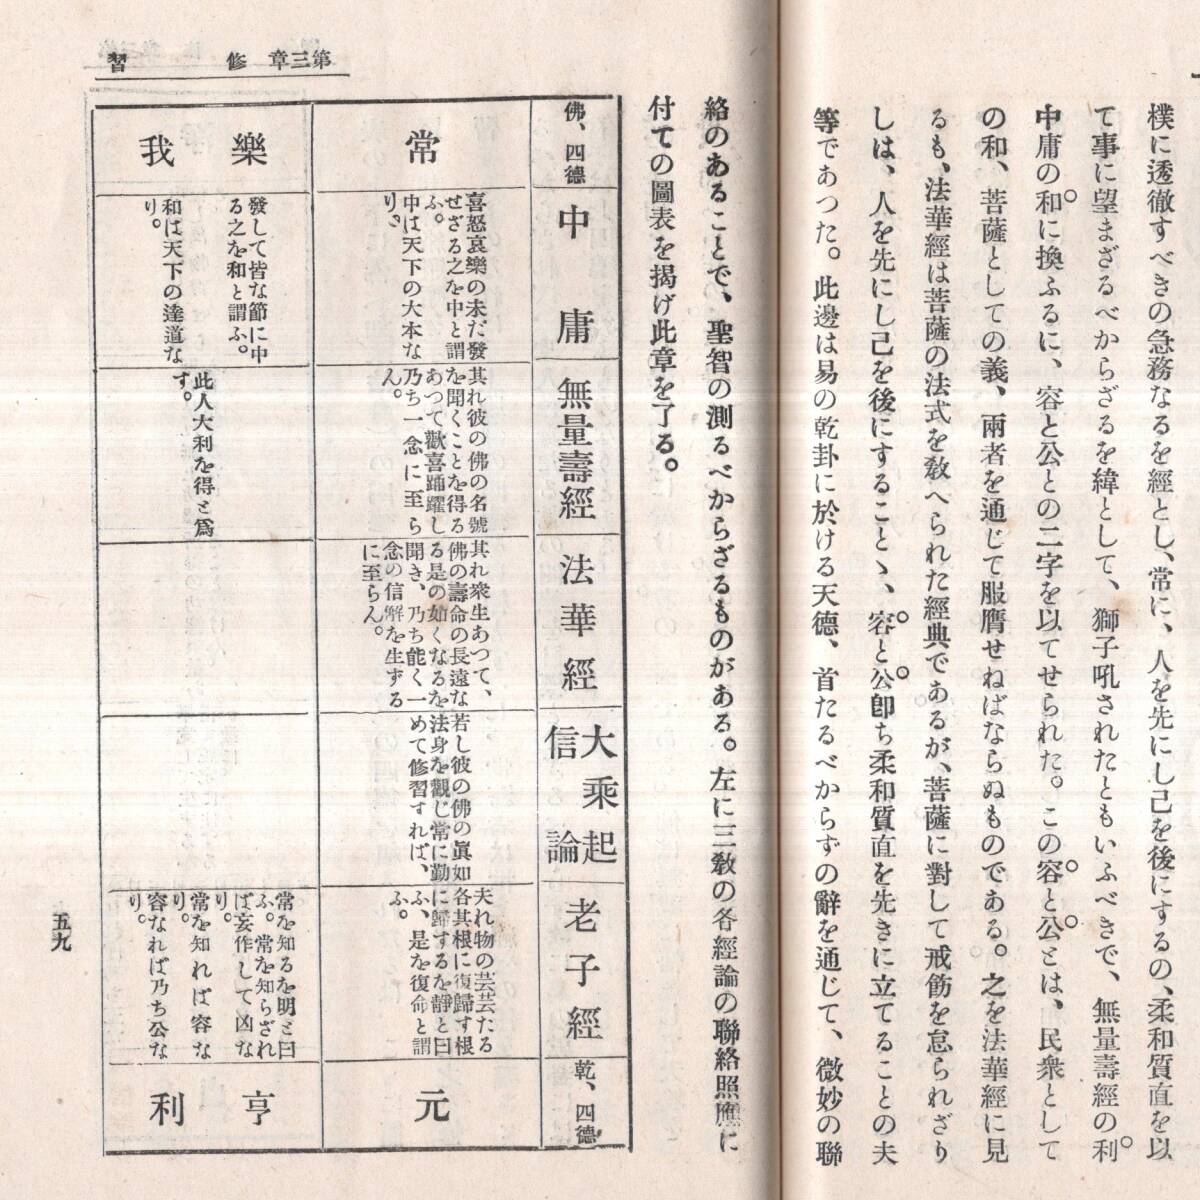 樸に透徹すべきの急務なるを經とし、常に、人を先にし己を後にするの、柔和質直を以
て事に望まざるべからざるを緯として、獅子吼されたともいふべきで、無量壽經の利
中庸の和に換ふるに、容と公との二字を以てせられた。この容と公とは、民衆として
の和、菩薩としての義、兩者を通じて服膺せねばならぬものである。之を法華經に見
るも、法華經は菩薩の法式を敎へられた經典であるが、菩薩に對して戒飭を怠られざり
しは、人を先にし己を後にすることヽ、容と公卽ち柔和質直を先きに立てることの夫
等であつた。此邊は易の乾卦に於ける天德、首たるべからずの辭を通じて、微妙の聯
絡のあることで、聖智の測るべからざるものがある。左に三敎の各經論の聯絡照應に
付ての圖表を揭げ此章を了る。
第三章 修習
佛、四德
中庸
無量壽經
法華經
大乘起信論
老子經
乾、四德
常
喜怒哀樂の未だ發
せざる之を中と謂
ふ。
中は天下の大本な
り。
其れ彼の佛の名號
を聞くことを得る
あつて歡喜踊躍し
乃ち一念に至ら
ん。
其れ衆生あつて、
佛の壽命の長遠な
る是の如くなるを
聞き、乃ち能く一
念の信解を生ずる
に至らん。
若し彼の佛の眞如
法身を觀じ常に勤
めて修習すれば、
夫れ物の芸芸たる
各其根に復歸す根
に歸するを靜と曰
ふ、是を復命と謂
ふ。
元
樂 我
發して皆な節に中
る之を和と謂ふ。
和は天下の達道な
り。
此人大利を得と爲
す。
常を知るを明と曰
ふ。常を知らざれ
ば妄作して凶な
り。
常を知れば容な
り。
容なれば乃ち公な
り。
亨 利
五九